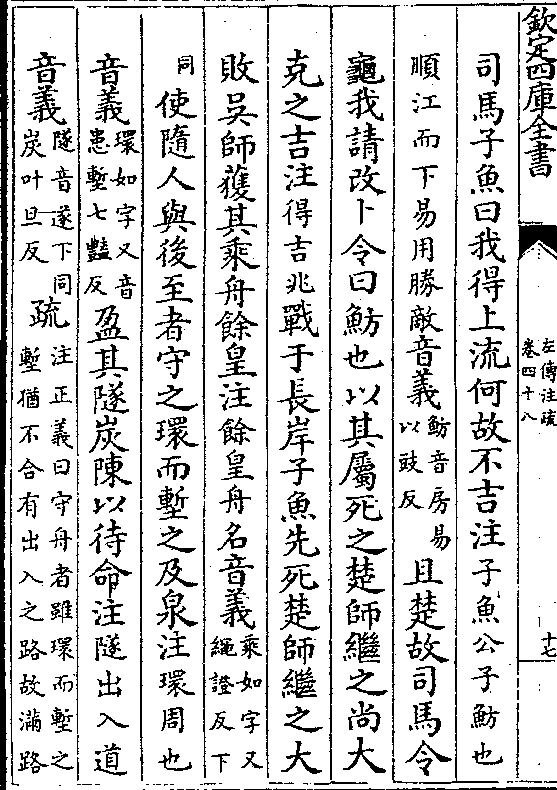 欽定四庫全書
左傳注疏
卷四十八
十七
司馬子魚曰我得上流何故不吉注子魚公子魴也
順江而下易用勝敵音義魴音房易
以豉反且楚故司馬令
龜我請改卜令曰魴也以其屬死之楚師繼之尚大
克之吉注得吉兆戰于長岸子魚先死楚師繼之大
敗吳師獲其乘舟餘皇注餘皇舟名音義乘如字又
繩證反下
同使隨人與後至者守之環而塹之及泉注環周也
音義環如字又音
患塹七豔反盈其隧炭陳以待命注隧出入道
音義隧音遂下同
炭吐旦反疏注正義曰守舟者雖環而塹之
塹猶不合有出入之路故滿路